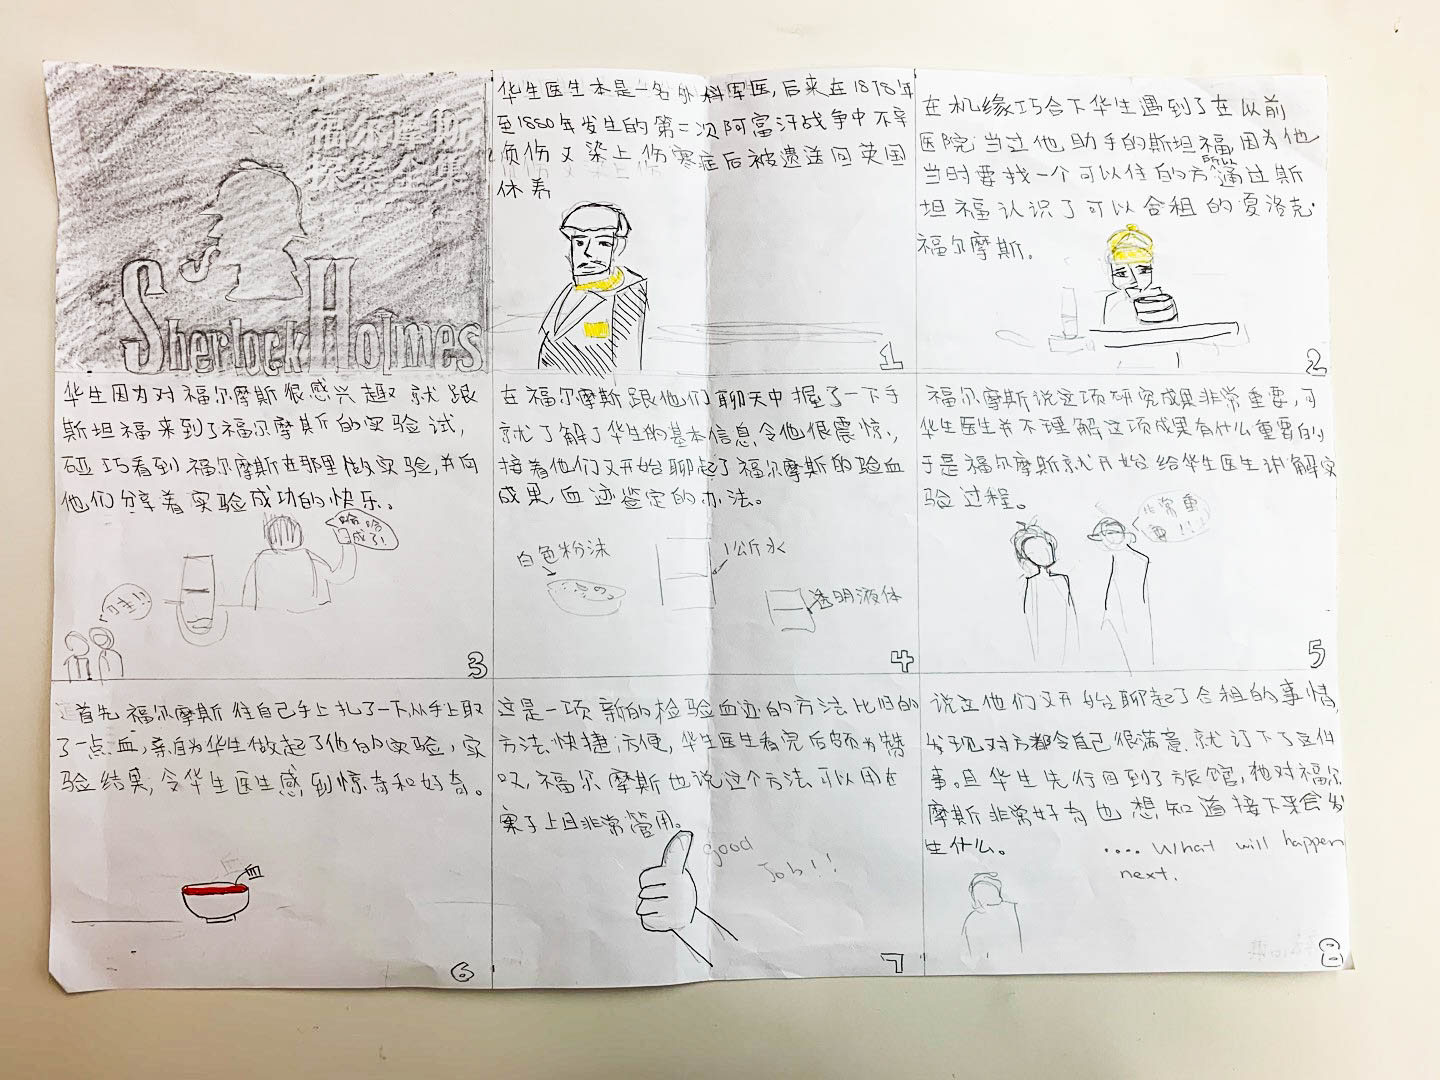 福尔摩斯
探案全集
Sherlock Holmes
华生医生本是一名外科军医,后来在1878年
至1880年发生的第二次阿富汗战争中不幸
负伤又染上伤寒症后被遗送回英国
休养
1
在机缘巧合下华生遇到了在以前
医院当过他助手的斯坦福,因为他
当时要找一个可以住的方所以通过斯
坦福认识了可以合租的夏洛克·
福尔摩斯。
2
华生因为对福尔摩斯很感兴趣就跟
斯坦福来到了福尔摩斯的实验试,
碰巧看到福尔摩斯在那里做实验,并向
他们分享着实验成功的快乐。
哈哈
成了!
哇!!
3
在福尔摩斯跟他们聊天中握了一下手
就了解了华生的基本信息,令他很震惊,
接着他们又开始聊起了福尔摩斯的验血
成果,血迹鉴定的办法。
白色粉沫
1公斤水
透明液体
4
福尔摩斯说这项研究成果非常重要,可
华生医生并不理解这项成果有什么重要的,
于是福尔摩斯就开始给华生医生讲解实
验过程。
非常重
要!!!
5
首先福尔摩斯往自己手上扎了一下,从手上取
了一点血,亲自为华生做起了他的实验,实
验结果,令华生医生感到惊奇和好奇。
血
6
这是一项新的检验血迹的方法比旧的
方法,快捷,方便,华生医生看完后颇为赞
叹,福尔摩斯也说这个方法可以用在
案子上且非常管用。
good
Job!!
7
说这他们又开始聊起了合租的事情,
发现对方都令自己很满意,就订下了这件
事。且华生先行回到了旅馆,他对福尔
摩斯非常好奇也想知道接下来会发
生什么。
.... What will happen
next.
8